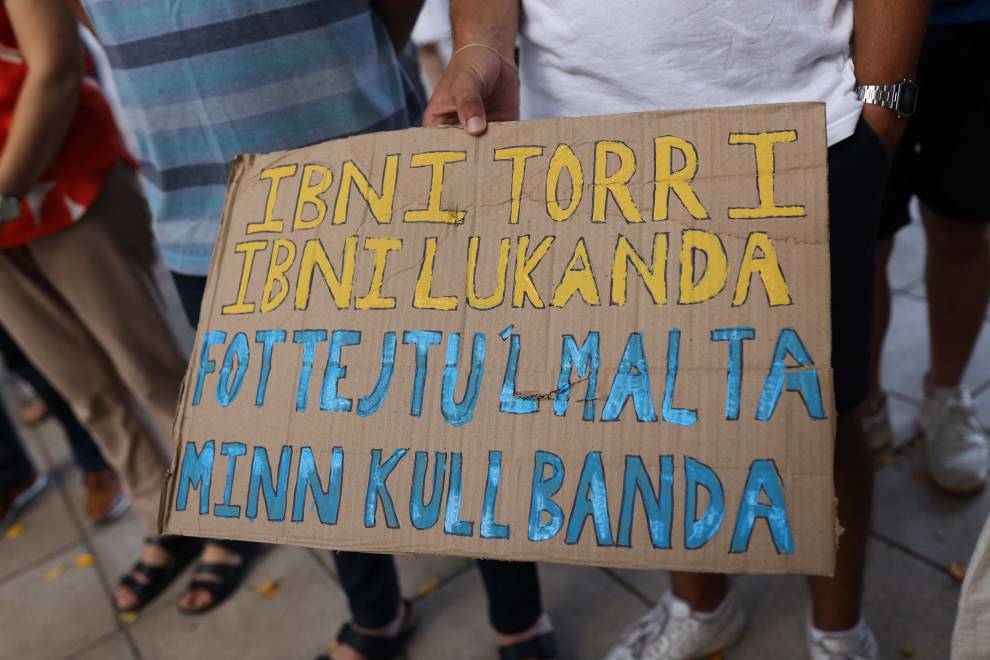 IBNI TORRI
IBNI LUKANDA
FOTTEJTU 'L MALTA
MINN KULL BANDA